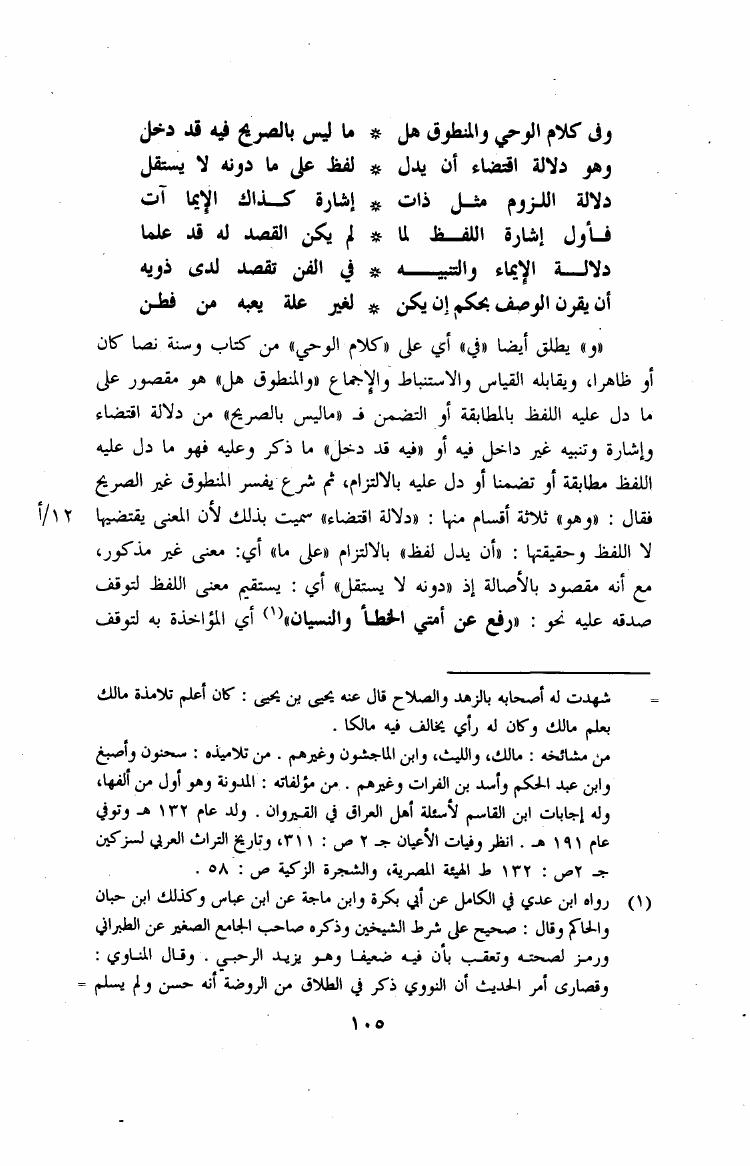 وفى كلام الوحي والمنطوق هل * ما ليس بالصريح فيه قد دخل
وهو دلالة اقتضاء أن يدل * لفظ على ما دونه لا يستقل
دلالة اللزوم مثل ذات * إشارة كذاك الإيما آت
فأول إشارة اللفظ لما * لم يكن القصد له قد علما
دلالة الإيماء والتنبيه * في الفن تقصد لدى ذويه
أن يقرن الوصف بحكم إن يكن * لغير علة يعبه من فطن
«و» يطلق أيضا «في» أي على «كلام الوحي» من كتاب وسنة نصا كان
أو ظاهرا، ويقابله القياس والاستنباط والإجماع «والمنطوق هل» هو مقصور على
ما دل عليه اللفظ بالمطابقة أو التضمن فـ «ماليس بالصريح» من دلالة اقتضاء
وإشارة وتنبيه غير داخل فيه أو «فيه قد دخل» ما ذكر وعليه فهو ما دل عليه
اللفظ مطابقة أو تضمنا أو دل عليه بالالتزام، ثم شرع يفسر المنطوق غير الصريح
فقال : «وهو» ثلاثة أقسام منها : «دلالة اقتضاء» سميت بذلك لأن المعنى يقتضيها ١٢/أ
لا اللفظ وحقيقتها : «أن يدل لفظ» بالالتزام «على ما» أي: معنى غير مذكور،
مع أنه مقصود بالأصالة إذ «دونه لا يستقل» أي : يستقيم معنى اللفظ لتوقف
صدقه عليه نحو : «رفع عن أمتي الخطأ والنسيان»(١) أي المؤاخذة به لتوقف
= شهدت له أصحابه بالزهد والصلاح قال عنه يحيى بن يحيى : كان أعلم تلامذة مالك
بعلم مالك وكان له رأي يخالف فيه مالكا .
من مشائخه : مالك، والليث، وابن الماجشون وغيرهم . من تلاميذه : سحنون وأصبغ
وابن عبد الحكم وأسد بن الفرات وغيرهم . من مؤلفاته : المدونة وهو أول من ألفها،
وله إجابات ابن القاسم لأسئلة أهل العراق في القيروان . ولد عام ١٣٢ هـ وتوفي
عام ١٩١ هـ . انظر وفيات الأعيان جـ ٢ ص : ٣١١، وتاريخ التراث العربي لسزكين
جـ ٢ص : ١٣٢ ط الهيئة المصرية، والشجرة الزكية ص : ٥٨ .
(١) رواه ابن عدي في الكامل عن أبي بكرة وابن ماجة عن ابن عباس وكذلك ابن حبان
والحاكم وقال : صحيح على شرط الشيخين وذكره صاحب الجامع الصغير عن الطبراني
ورمز لصحته وتعقب بأن فيه ضعيفا وهو يزيد الرحبي . وقال المناوي :
وقصارى أمر الحديث أن النووي ذكر في الطلاق من الروضة أنه حسن ولم يسلم =
١٠٥